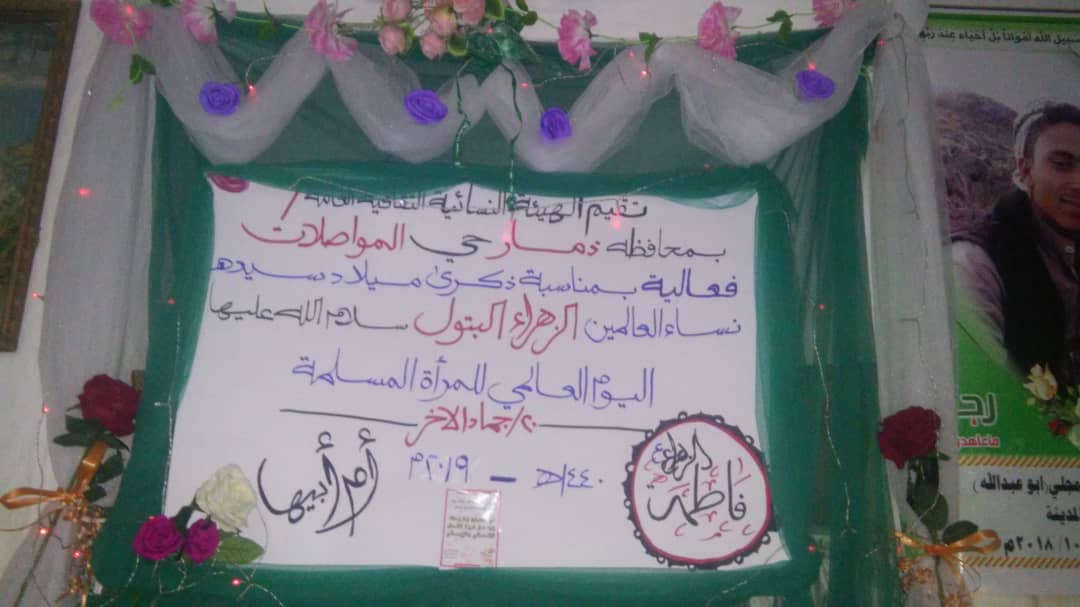 تقيم الهيئة النسائية الثقافية العامة /
بمحافظه ذمار حي المواصلات
فعالية بمناسبة ذكرى ميلاد سيده
نساء العالمين الزهراء البتول سلام الله عليها
اليوم العالمي للمرأة المسلمة
٢٠/جماد الاخر
١٤٤٠ه - ٢٠١٩م
أم أبيها
فاطمة الزهراء
سبيل الله أمواتا بل أحياء عند
مجلي (ابو عبدالله)
٢٠١٨م